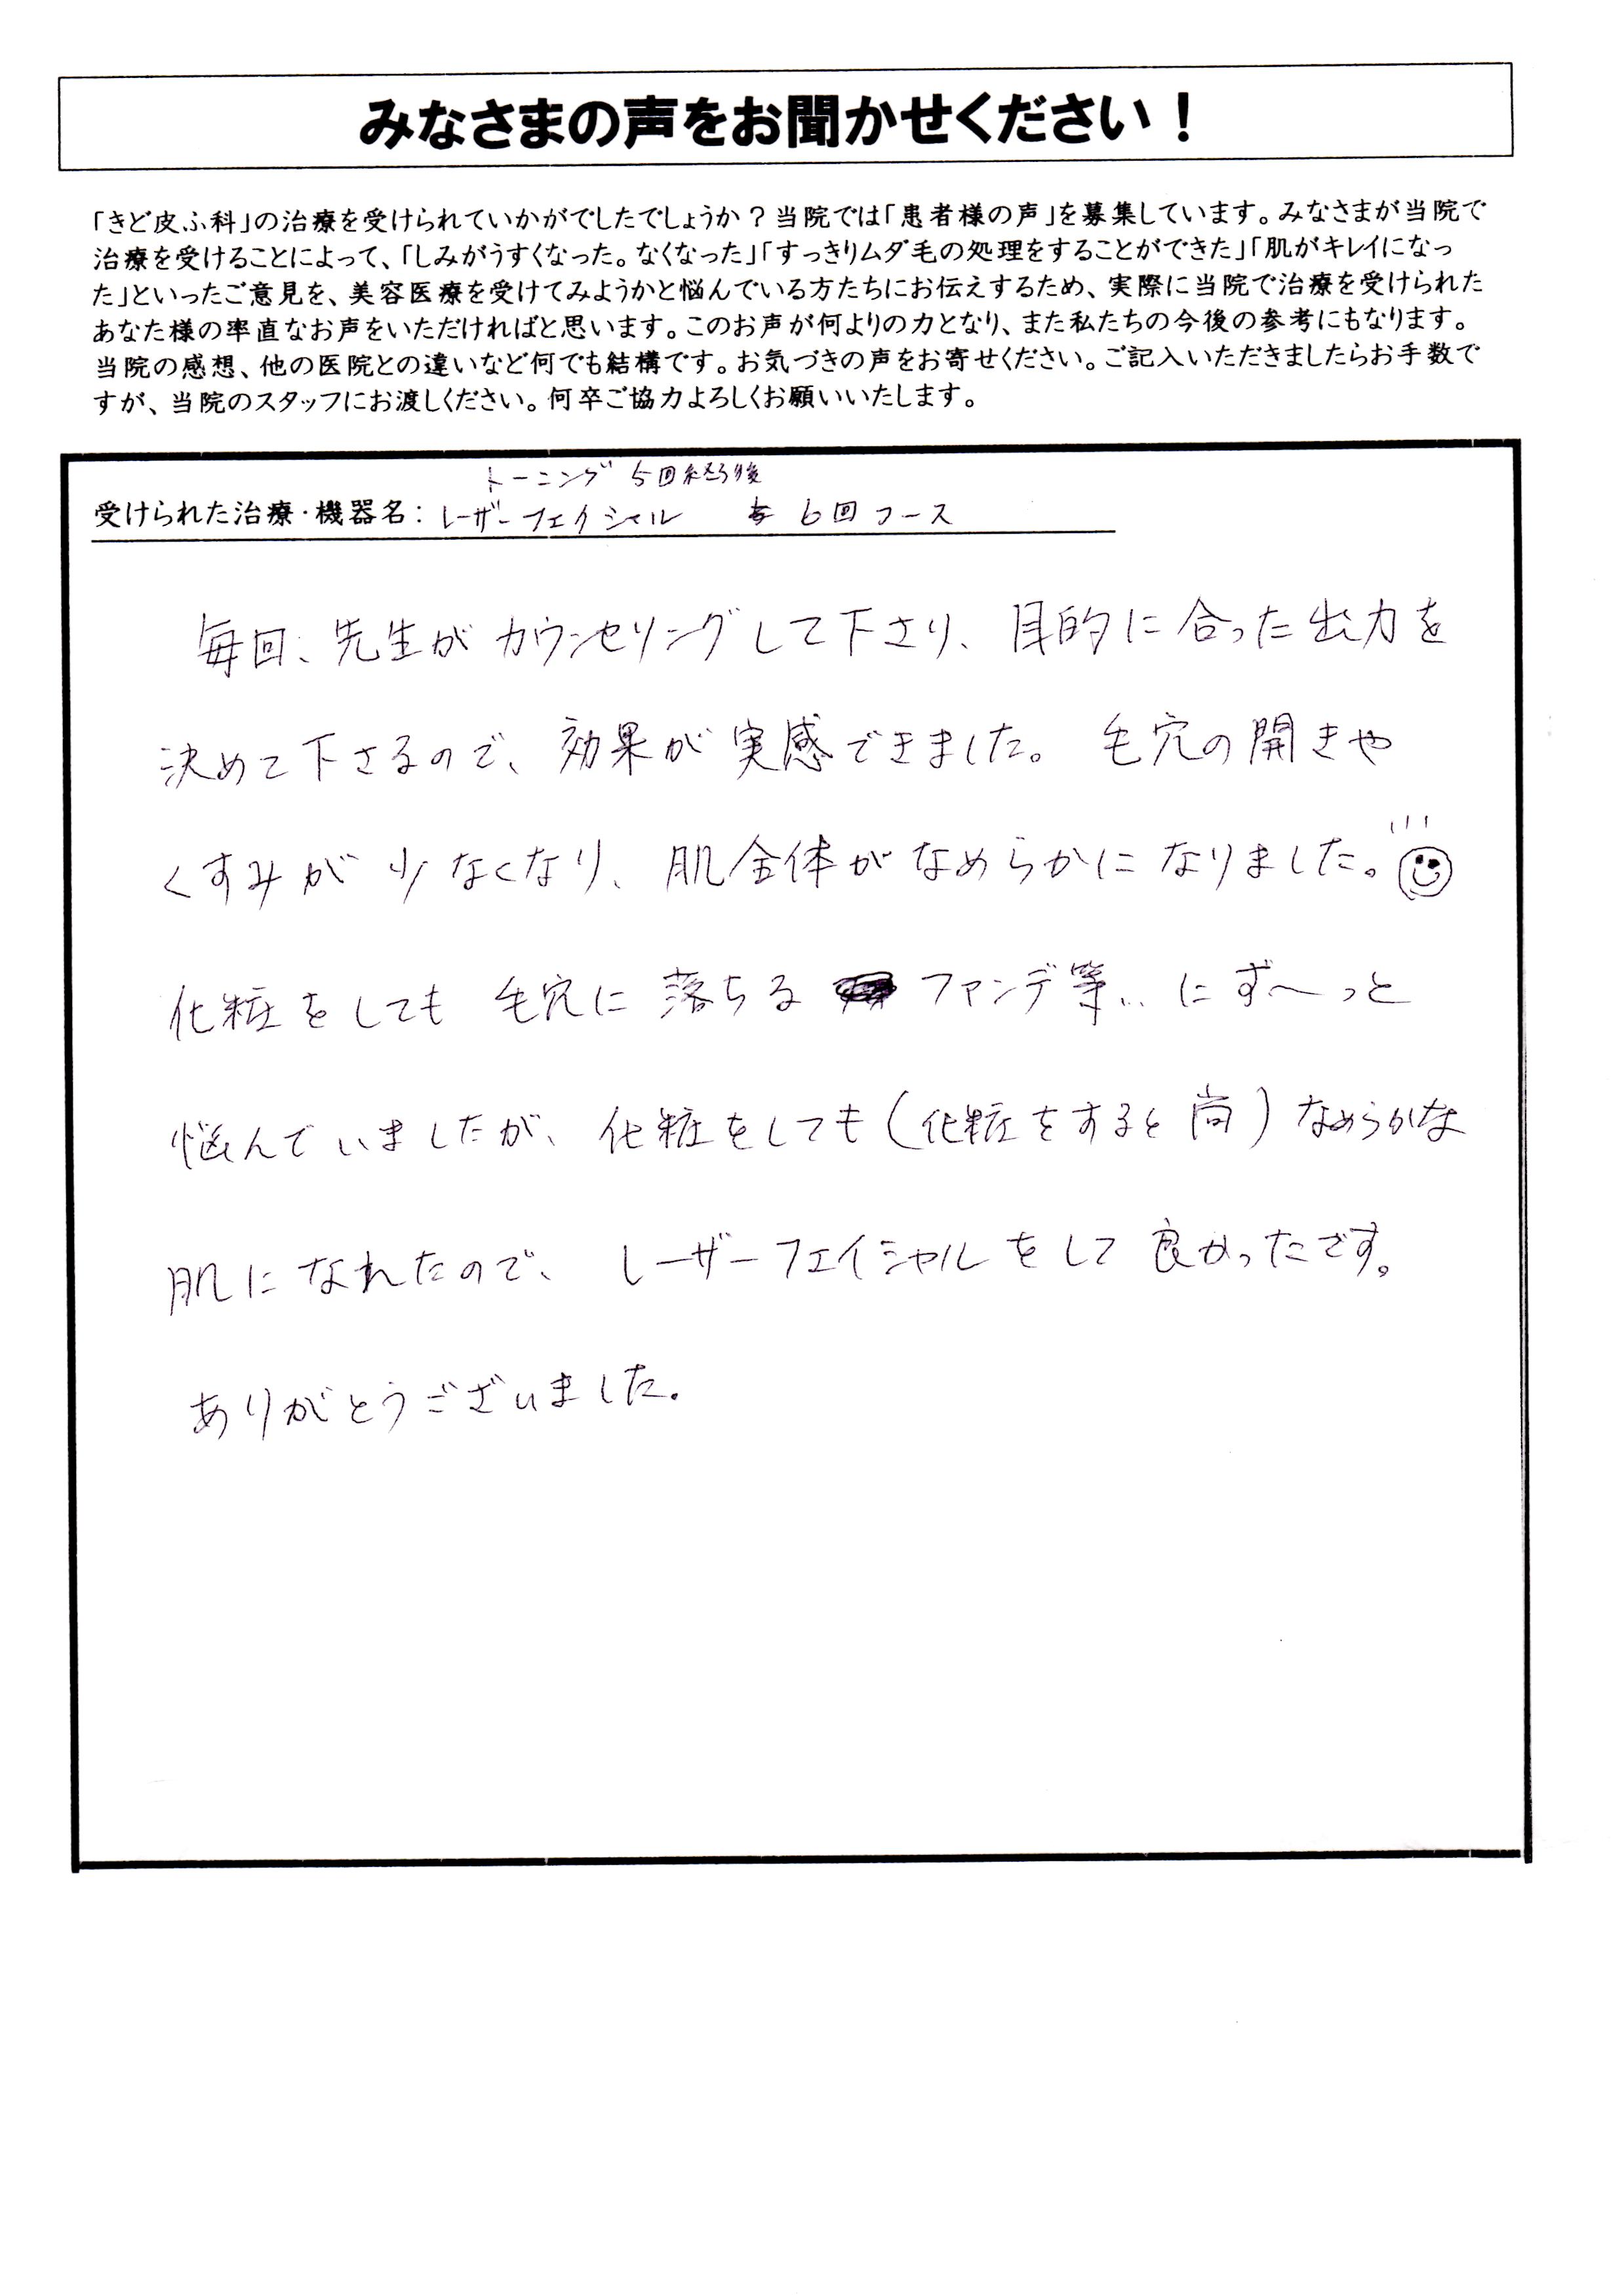 みなさまの声をお聞かせください！
「きど皮ふ科」の治療を受けられていかがでしたでしょうか？当院では「患者様の声」を募集しています。みなさまが当院で
治療を受けることによって、「しみがうすくなった。なくなった」「すっきりムダ毛の処理をすることができた」「肌がキレイになっ
た」といったご意見を、美容医療を受けてみようかと悩んでいる方たちにお伝えするため、実際に当院で治療を受けられた
あなた様の率直なお声をいただければと思います。このお声が何よりの力となり、また私たちの今後の参考にもなります。
当院の感想、他の医院との違いなど何でも結構です。お気づきの声をお寄せください。ご記入いただきましたらお手数で
すが、当院のスタッフにお渡しください。何卒ご協力よろしくお願いいたします。
トーニング 5回経過後
受けられた治療・機器名：レーザーフェイシャル 6回コース
毎回、先生がカウンセリングして下さり、目的に合った出力を
決めて下さるので、効果が実感できました。毛穴の開きや
くすみが少なくなり、肌全体がなめらかになりました。
化粧をしても毛穴に落ちる ファンデ等… にず〜っと
悩んでいましたが、化粧をしても(化粧をすると尚)なめらかな
肌になれたので、レーザーフェイシャルをして良かったです。
ありがとうございました。